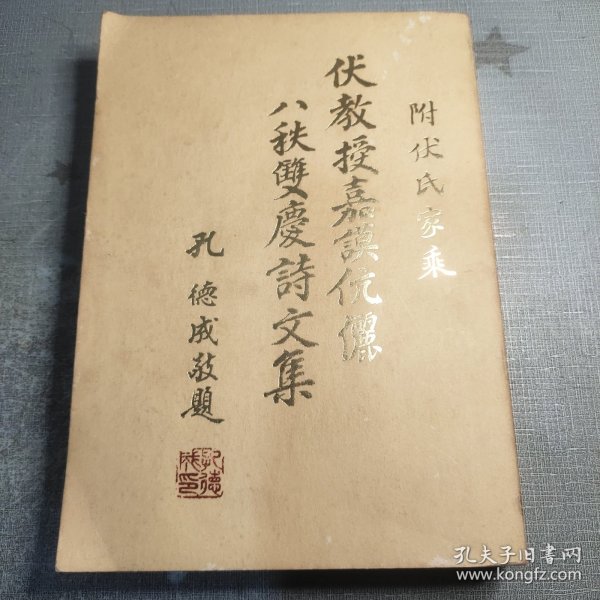 附伏氏家乘
伏教授嘉謨伉儷
八秩雙慶詩文集
孔德成敬題
孔德成印
孔夫子旧书网
www.kongfz.com